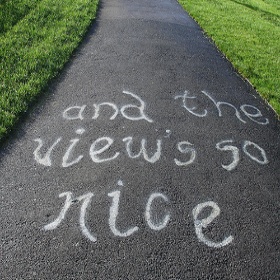 and the
view's so
nice